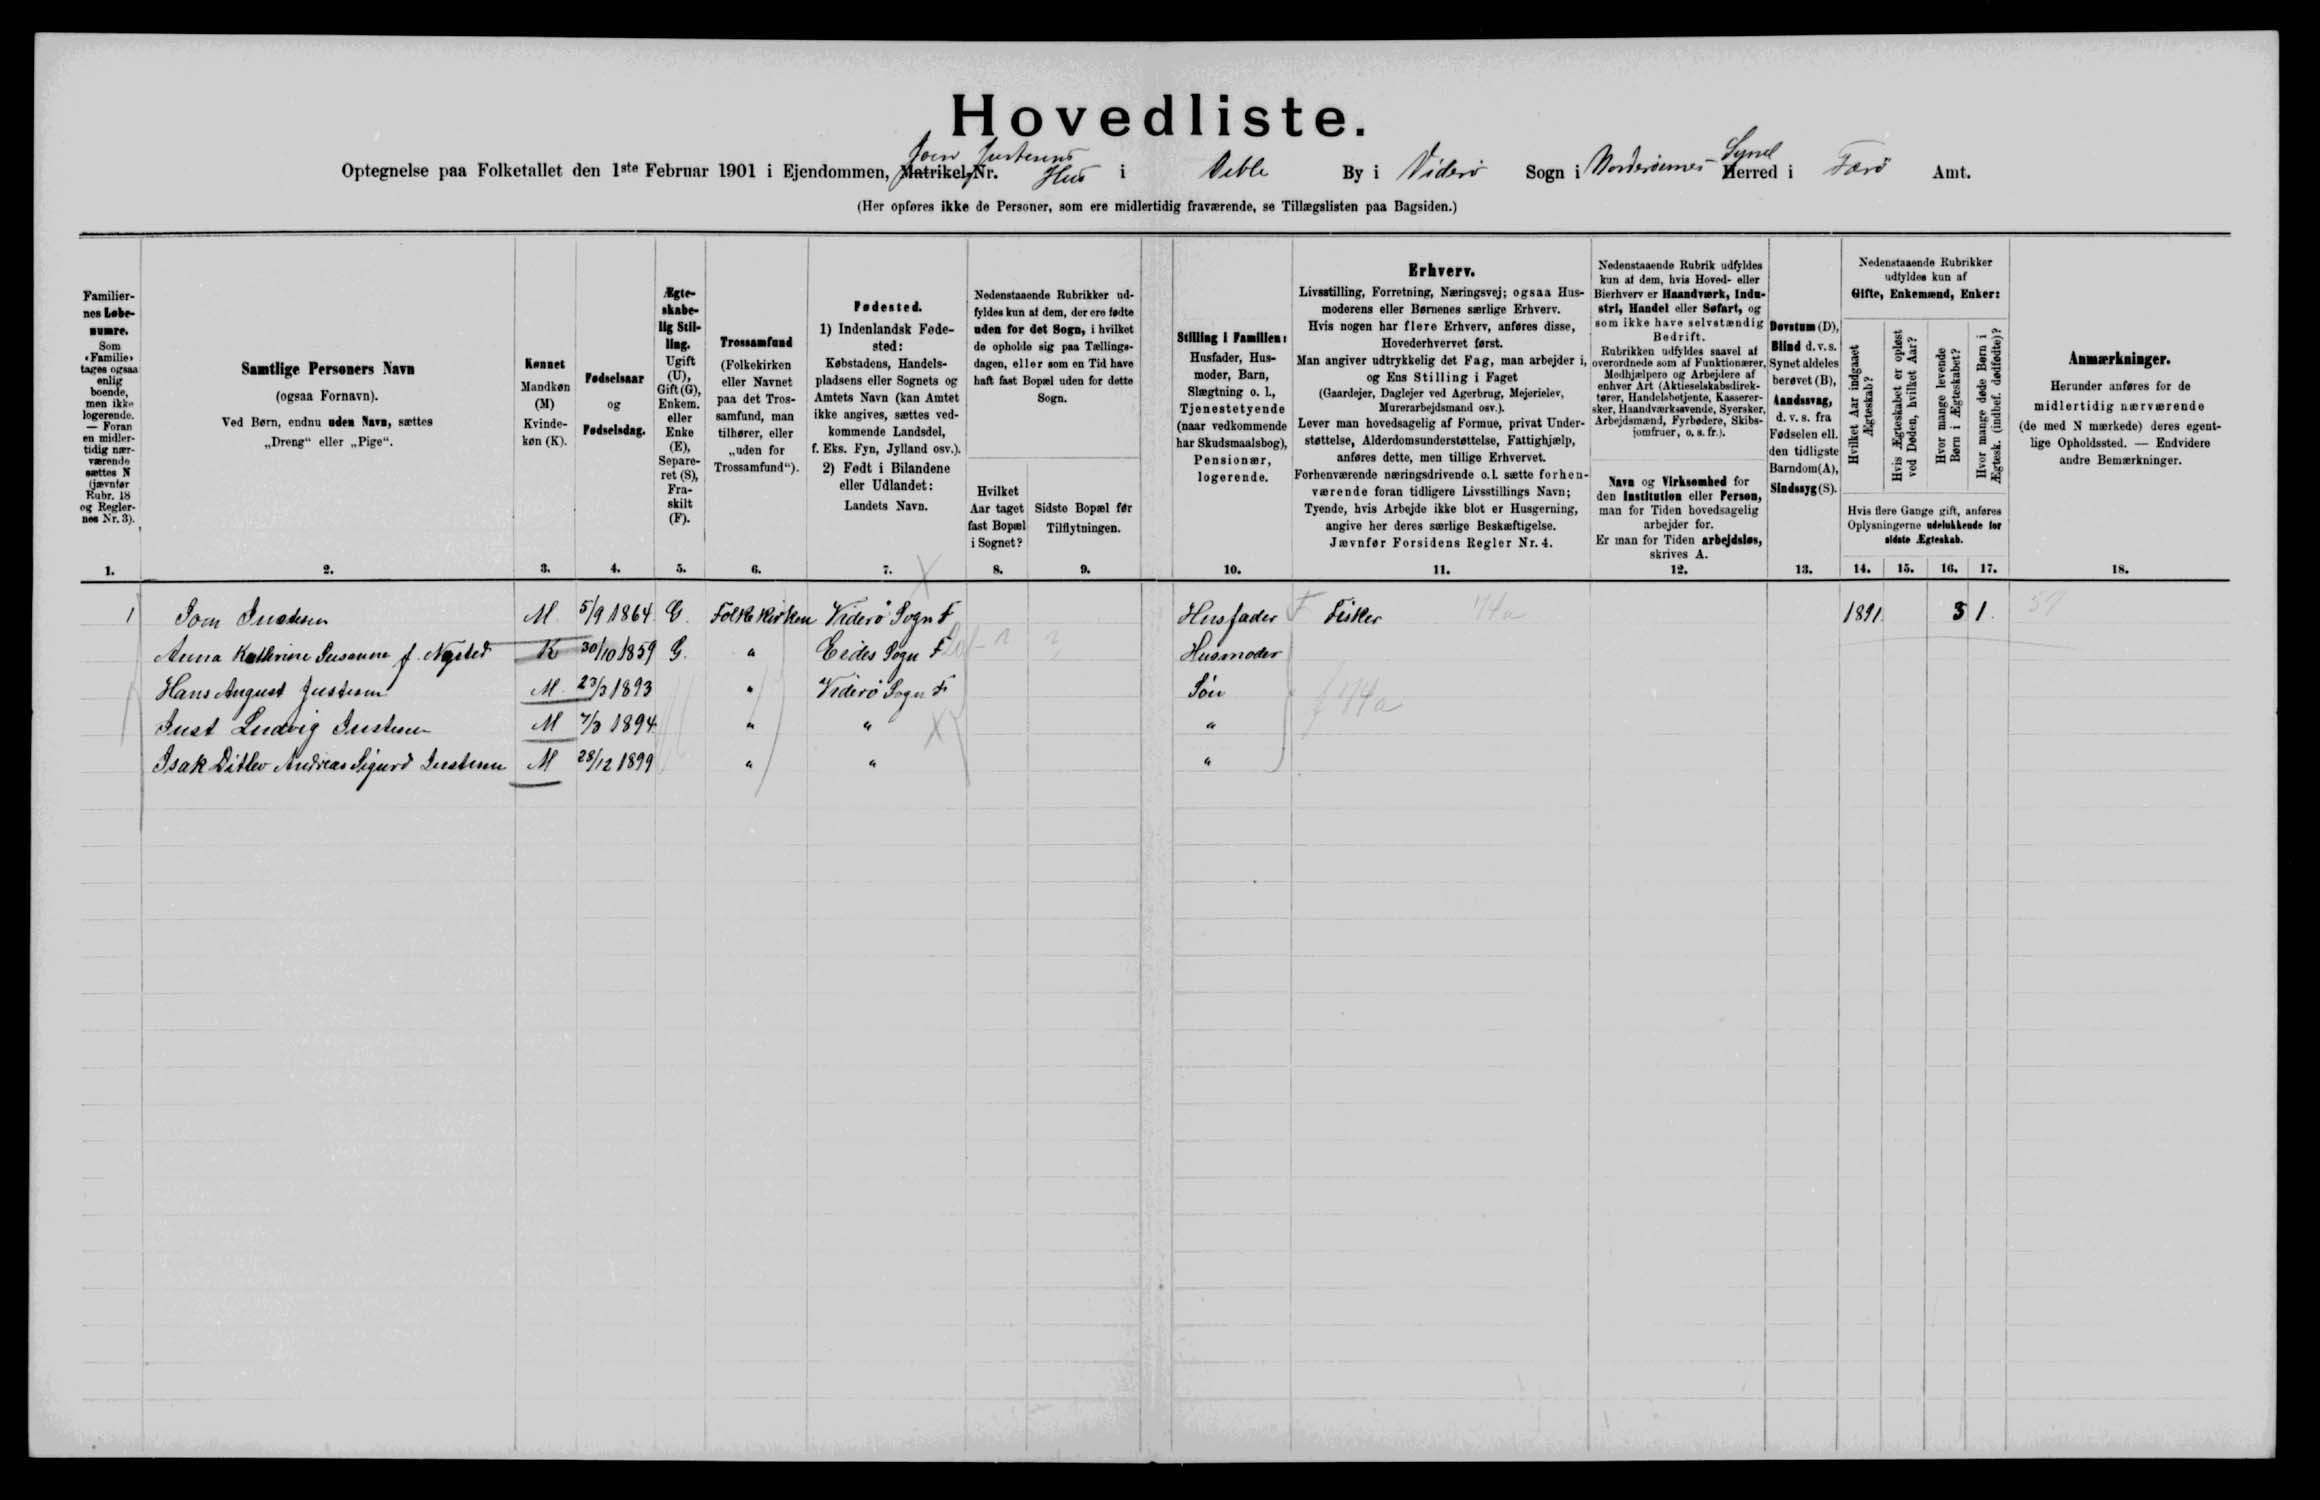 Hovedliste.
Optegnelse paa Folketallet den 1ste Februar 1901 i Ejendommen, Matrikel-Nr. Joen Justesens Hus i Vible By i Viderø Sogn i Norderøernes Syssel Herred i Færø Amt.
(Her opføres ikke de Personer, som ere midlertidig fraværende, se Tillægslisten paa Bagsiden.)
Familier-
nes Løbe-
numre.
Som
«Familie»
tages ogsaa
enlig
boende,
men ikke
logerende.
— Foran
en midler-
tidig nær-
værende
sættes N
(jævnfør
Rubr. 18
og Regler-
nes Nr. 3).
1.
Samtlige Personers Navn
(ogsaa Fornavn).
Ved Børn, endnu uden Navn, sættes
„Dreng“ eller „Pige“.
2.
Kønnet
Mandkøn
(M)
Kvinde-
køn (K).
3.
Fødselsaar
og
Fødselsdag.
4.
Ægte-
skabe-
lig Stil-
ling.
Ugift
(U),
Gift (G),
Enkem.
eller
Enke
(E),
Separe-
ret (S),
Fra-
skilt
(F).
5.
Trossamfund
(Folkekirken
eller Navnet
paa det Tros-
samfund, man
tilhører, eller
„uden for
Trossamfund“).
6.
Fødested.
1) Indenlandsk Føde-
sted:
Købstadens, Handels-
pladsens eller Sognets og
Amtets Navn (kan Amtet
ikke angives, sættes ved-
kommende Landsdel,
f. Eks. Fyn, Jylland osv.).
2) Født i Bilandene
eller Udlandet:
Landets Navn.
7.
Nedenstaaende Rubrikker ud-
fyldes kun af dem, der ere fødte
uden for det Sogn, i hvilket
de opholde sig paa Tællings-
dagen, eller som en Tid have
haft fast Bopæl uden for dette
Sogn.
Hvilket
Aar taget
fast Bopæl
i Sognet?
8.
Sidste Bopæl før
Tilflytningen.
9.
Stilling i Familien:
Husfader, Hus-
moder, Barn,
Slægtning o. l.,
Tjenestetyende
(naar vedkommende
har Skudsmaalsbog),
Pensionær,
logerende.
10.
Erhverv.
Livsstilling, Forretning, Næringsvej; ogsaa Hus-
moderens eller Børnenes særlige Erhverv.
Hvis nogen har flere Erhverv, anføres disse,
Hovederhvervet først.
Man angiver udtrykkelig det Fag, man arbejder i,
og Ens Stilling i Faget
(Gaardejer, Daglejer ved Agerbrug, Mejerielev,
Murerarbejdsmand osv.).
Lever man hovedsagelig af Formue, privat Under-
støttelse, Alderdomsunderstøttelse, Fattighjælp,
anføres dette, men tillige Erhvervet.
Forhenværende næringsdrivende o. l. sætte forhen-
værende foran tidligere Livsstillings Navn;
Tyende, hvis Arbejde ikke blot er Husgerning,
angive her deres særlige Beskæftigelse.
Jævnfør Forsidens Regler Nr. 4.
11.
Nedenstaaende Rubrik udfyldes
kun af dem, hvis Hoved- eller
Bierhverv er Haandværk, Indu-
stri, Handel eller Søfart, og
som ikke have selvstændig
Bedrift.
Rubrikken udfyldes saavel af
overordnede som af Funktionærer,
Medhjælpere og Arbejdere af
enhver Art (Aktieselskabsdirek-
tører, Handelsbetjente, Kasserer-
sker, Haandværkssvende, Syersker,
Arbejdsmænd, Fyrbødere, Skibs-
jomfruer, o. s. fr.).
Navn og Virksomhed for
den Institution eller Person,
man for Tiden hovedsagelig
arbejder for.
Er man for Tiden arbejdsløs,
skrives A.
12.
Døvstum (D),
Blind d. v. s.
Synet aldeles
berøvet (B),
Aandssvag,
d. v. s. fra
Fødselen ell.
den tidligste
Barndom (A),
Sindssyg (S).
13.
Nedenstaaende Rubrikker
udfyldes kun af
Gifte, Enkemænd, Enker:
Hvilket Aar indgaaet
Ægteskab?
Hvis Ægteskabet er opløst
ved Døden, hvilket Aar?
Hvor mange levende
Børn i Ægteskabet?
Hvor mange døde Børn i
Ægtesk. (indbef. dødfødte)?
Hvis flere Gange gift, anføres
Oplysningerne udelukkende for
sidste Ægteskab.
14. 15. 16. 17.
Anmærkninger.
Herunder anføres for de
midlertidig nærværende
(de med N mærkede) deres egent-
lige Opholdssted. — Endvidere
andre Bemærkninger.
18.
1 Joen Justesen M. 5/9 1864. G. Folkekirken Viderø Sogn F Husfader F Fisker 74a 1891 3 1. 59
Anna Kathrine Susanne f. Nysted K 30/10 1859 G. " Eides Sogn F Husmoder
Hans August Justesen M. 23/3 1893 " Viderø Sogn F Søn f 74a
Just Ludvig Justesen M 7/3 1894. " " "
Isak Ditlev Andreas Sigurd Justesen M 28/12 1899 " " "